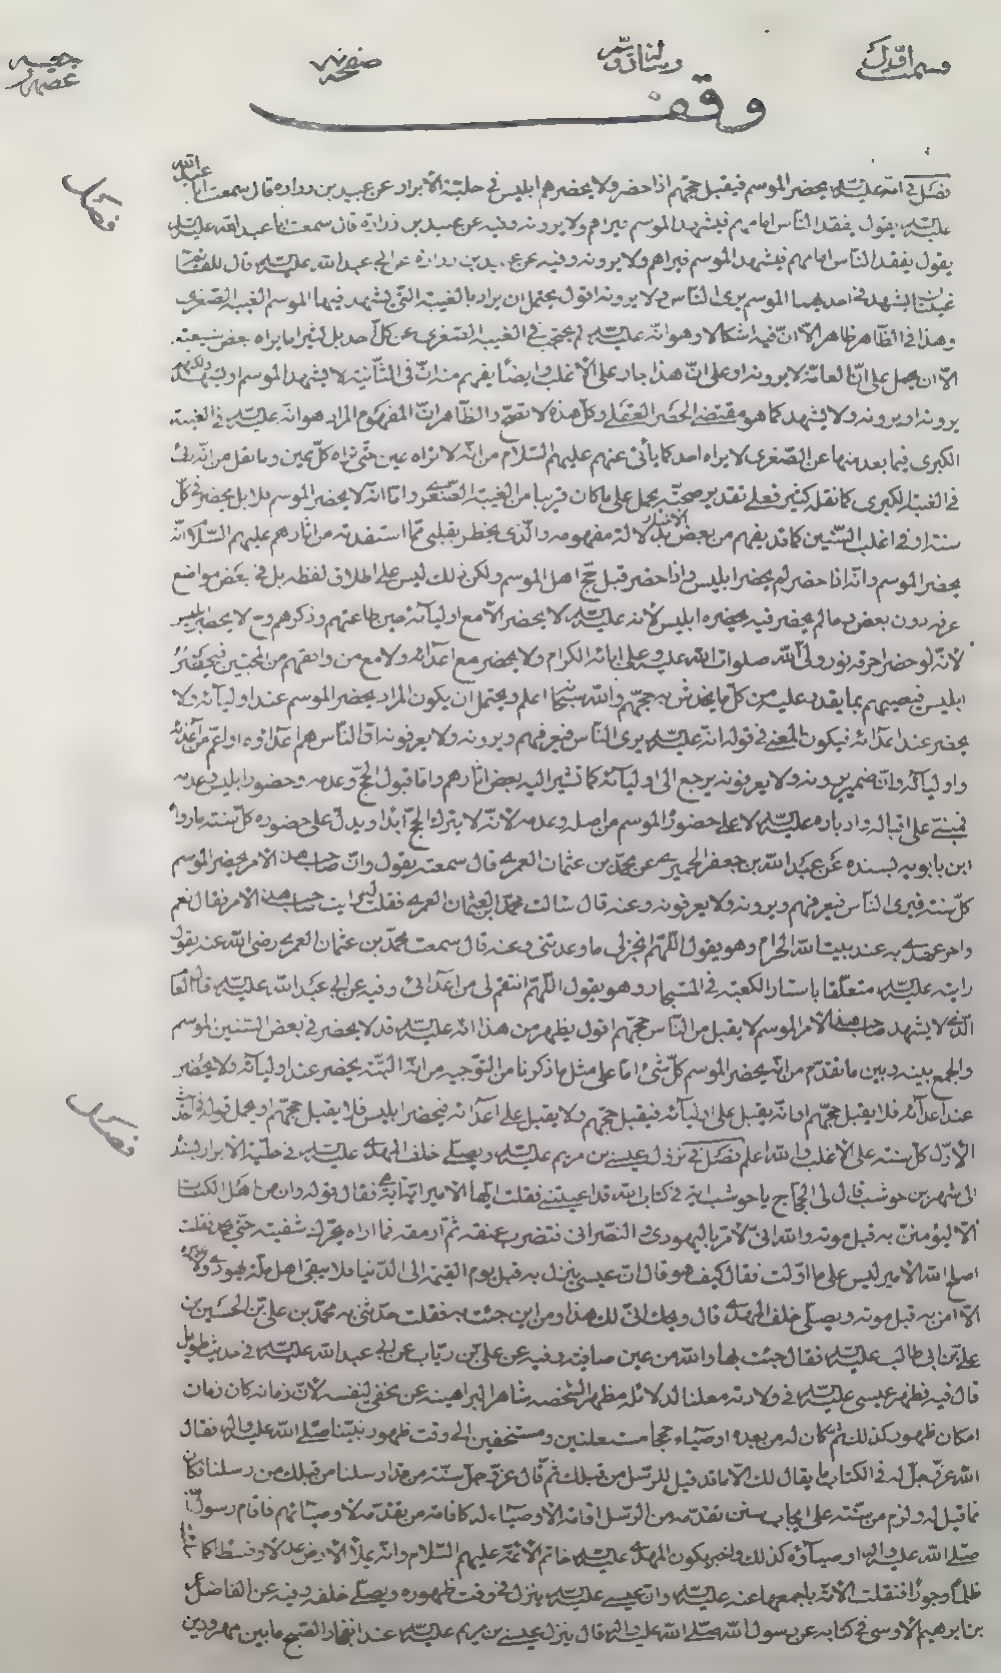 وقف
فصل
فصل في انه عليه السلام يحضر الموسم فيقبل حجهم اذا حضر ولا يحضرهم ابليس في حلية الأبرار عن عبيد بن زرارة قال سمعت ابا عبد الله
عليه السلام يقول يفقد الناس امامهم فيشهد الموسم فيراهم ولا يرونه وفيه عن عبيد بن زرارة قال سمعت ابا عبد الله عليه السلام
يقول يفقد الناس امامهم فيشهد الموسم فيراهم ولا يرونه وفيه عن عبيد بن زرارة عن ابي عبد الله عليه السلام قال للقائم
غيبتان يشهد في احديهما الموسم يرى الناس ولا يرونه اقول يحتمل ان يراد بالغيبة التي يشهد فيها الموسم الغيبة الصغرى
وهذا في الظاهر ظاهر الا ان فيه اشكالا وهو انه عليه السلام لم يحتجب في الغيبة الصغرى عن كل احد بل كثيرا ما يراه بعض شيعته
الا ان يحمل على ان العامة لا يرونه او على ان هذا جار على الأغلب وايضا يفهم منه ان في الثانية لا يشهد الموسم او يشهد
يرونه او يرونه ولا يشهد كما هو مقتضى الحصر العقلي وكل هذه لا تصح والظاهر ان المفهوم المراد هو انه عليه السلام في الغيبة
الكبرى فيما بعد منها عن الصغرى لا يراه احد كما يأتي عنهم عليهم السلام من انه لا تراه عين حتى تراه كل عين وما نقل من انه رئي
في الغيبة الكبرى كما نقله كثير فعلى تقدير صحته يحمل على ما كان قريبا من الغيبة الصغرى واما انه لا يحضر الموسم فلا بل يحضر في كل
سنة او في اغلب السنين كما قد يفهم من بعض الاخبار بل دلالة مفهومه والذي يخطر بقلبي مما استفدته من اثارهم عليهم السلام انه
يحضر الموسم وانه اذا حضر لم يحضر ابليس واذا حضر قبل حج اهل الموسم ولكن ذلك ليس على اطلاق لفظه بل في بعض مواضع
عرفه دون بعض وما لم يحضر فيه يحضره ابليس لأنه عليه السلام لا يحضر الا مع اوليائه حين طاعتهم وذكرهم وح لا يحضر ابليس
لأنه لو حضر احرقه نور ولي الله صلوات الله عليه وعلى ابائه الكرام ولا يحضر مع اعدائه ولا مع من وافقهم من المحبين فيحضر
ابليس فيصيبهم بما يقدر عليه من كل ما يخدش به حجهم والله سبحانه اعلم ويحتمل ان يكون المراد يحضر الموسم عند اوليائه ولا
يحضر عند اعدائه فيكون المعنى في قوله انه عليه السلام يرى الناس فيعرفهم ويرونه ولا يعرفونه ان الناس هم اعداؤه او اعم من اعدائه
واوليائه وان ضمير يرونه ولا يعرفونه يرجع الى اوليائه كما تشير اليه بعض اثارهم واما قبول الحج وعدمه وحضور ابليس وعدمه
فمبني على اقباله وادباره عليه السلام لا على حضور الموسم من اصله وعدمه لأنه لا يترك الحج ابدا ويدل على حضوره كل سنة ما رواه
ابن بابويه بسنده عن عبد الله بن جعفر الحميري عن محمد بن عثمان العمري قال سمعته يقول وان صاحب هذا الامر يحضر الموسم
كل سنة فيرى الناس فيعرفهم ويرونه ولا يعرفونه وعنه قال سالت محمد ابن عثمان العمري فقلت ارايت صاحب هذا الامر فقال نعم
واخر عهدي به عند بيت الله الحرام وهو يقول اللهم انجز لي ما وعدتني وعنه قال سمعت محمد بن عثمان العمري رضي الله عنه يقول
رايته عليه السلام متعلقا باستار الكعبة في المستجار وهو يقول اللهم انتقم لي من اعدائي وفيه عن ابي عبد الله عليه السلام قال العام
الذي لا يشهد صاحب هذا الأمر الموسم لا يقبل من الناس حجهم اقول يظهر من هذا انه عليه السلام قد لا يحضر في بعض السنين الموسم
والجمع بينه وبين ما تقدم من انه يحضر الموسم كل شيء اما على مثل ما ذكرنا من التوجيه من انه البتة يحضر عند اوليائه ولا يحضر
عند اعدائه فلا يقبل حجهم او انه يقبل على اوليائه فيقبل حجهم ولا يقبل على اعدائه فيحضر ابليس فلا يقبل حجهم او يحمل قوله في
الأول كل سنة على الأغلب والله اعلم فصل في نزول عيسى بن مريم عليه السلام ويصلي خلف المهدي عليه السلام في حلية الابرار بسنده
فصل
الى شهر بن حوشب قال لي الحجاج يا حوشب اية في كتاب الله قد اعيتني فقلت ايها الامير اية اية هي فقال قوله وان من اهل الكتاب
الا ليؤمنن به قبل موته والله اني لأمر باليهودي والنصراني فتضرب عنقه ثم ارمقه فما اراه يحرك شفتيه حتى يحمل فقلت
اصلح الله الامير ليس على ما اولت فقال كيف هو قال ان عيسى ينزل به قبل يوم القيمة الى الدنيا فلا يبقى اهل ملة يهودي ولا غيره
الا امن به قبل موته ويصلي خلف المهدي قال ويحك انى لك هذا ومن اين جئت به فقلت حدثني به محمد بن علي بن الحسين بن
علي بن ابي طالب عليه السلام فقال جئت بها والله من عين صافية وفيه عن علي بن رياب عن ابي عبد الله عليه السلام في حديث طويل
قال فيه فظهر عيسى عليه السلام في ولادته معلنا لدلائله مظهرا لشخصه شاهرا لبراهينه غير مخفي لنفسه لأن زمانه كان زمان
امكان ظهور كذلك ثم كان له من بعده اوصياء حججا مستعلنين ومستخفين الى وقت ظهور نبينا صلى الله عليه واله فقال
الله عز وجل له في الكتاب ما يقال لك الا ما قد قيل للرسل من قبلك ثم قال عز وجل سنة من قد ارسلنا من قبلك من رسلنا فكان
مما قيل له ولزم من سنته على ايجاب سنن تقدمه من الرسل اقامة الاوصياء له كاقامة من تقدمه لاوصيائهم فاقام رسول الله
صلى الله عليه واله اوصياؤه كذلك واخبر بكون المهدي عليه السلام خاتم الأئمة عليهم السلام وانه يملأ الارض عدلا وقسطا كما ملئت
ظلما وجورا فنقلت الأمة باجمعها عنه عليه السلام وان عيسى عليه السلام ينزل في وقت ظهوره ويصلي خلفه وفيه عن الفاضل
بن ابرهيم الأوسي في كتابه عن رسول الله صلى الله عليه واله قال ينزل عيسى بن مريم عليه السلام عند انفجار الصبح ما بين مهرودين